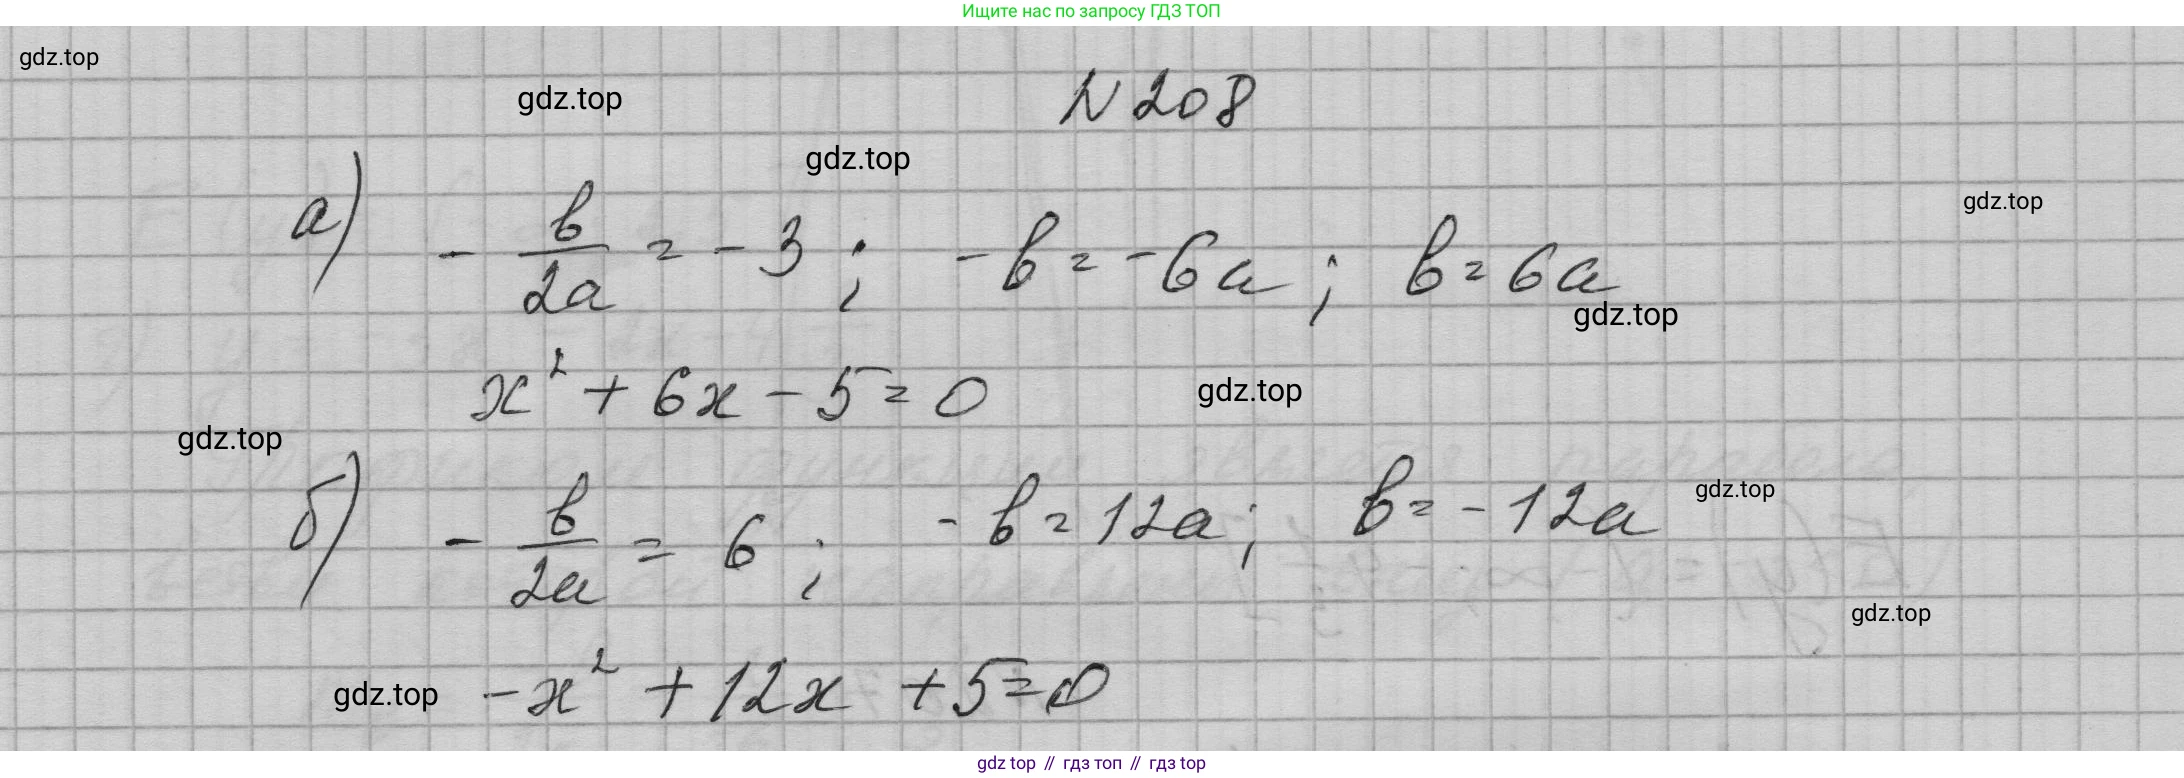 Ищите нас по запросу ГДЗ ТОП
gdz.top
gdz.top
N 208
gdz.top
gdz.top
а) - b/2a = -3 ; -b = -6a ; b = 6a
gdz.top
x² + 6x - 5 = 0
gdz.top
gdz.top
б) - b/2a = 6 ; -b = 12a ; b = -12a
gdz.top
gdz.top
gdz.top
-x² + 12x + 5 = 0
gdz top // гдз топ // gdz top